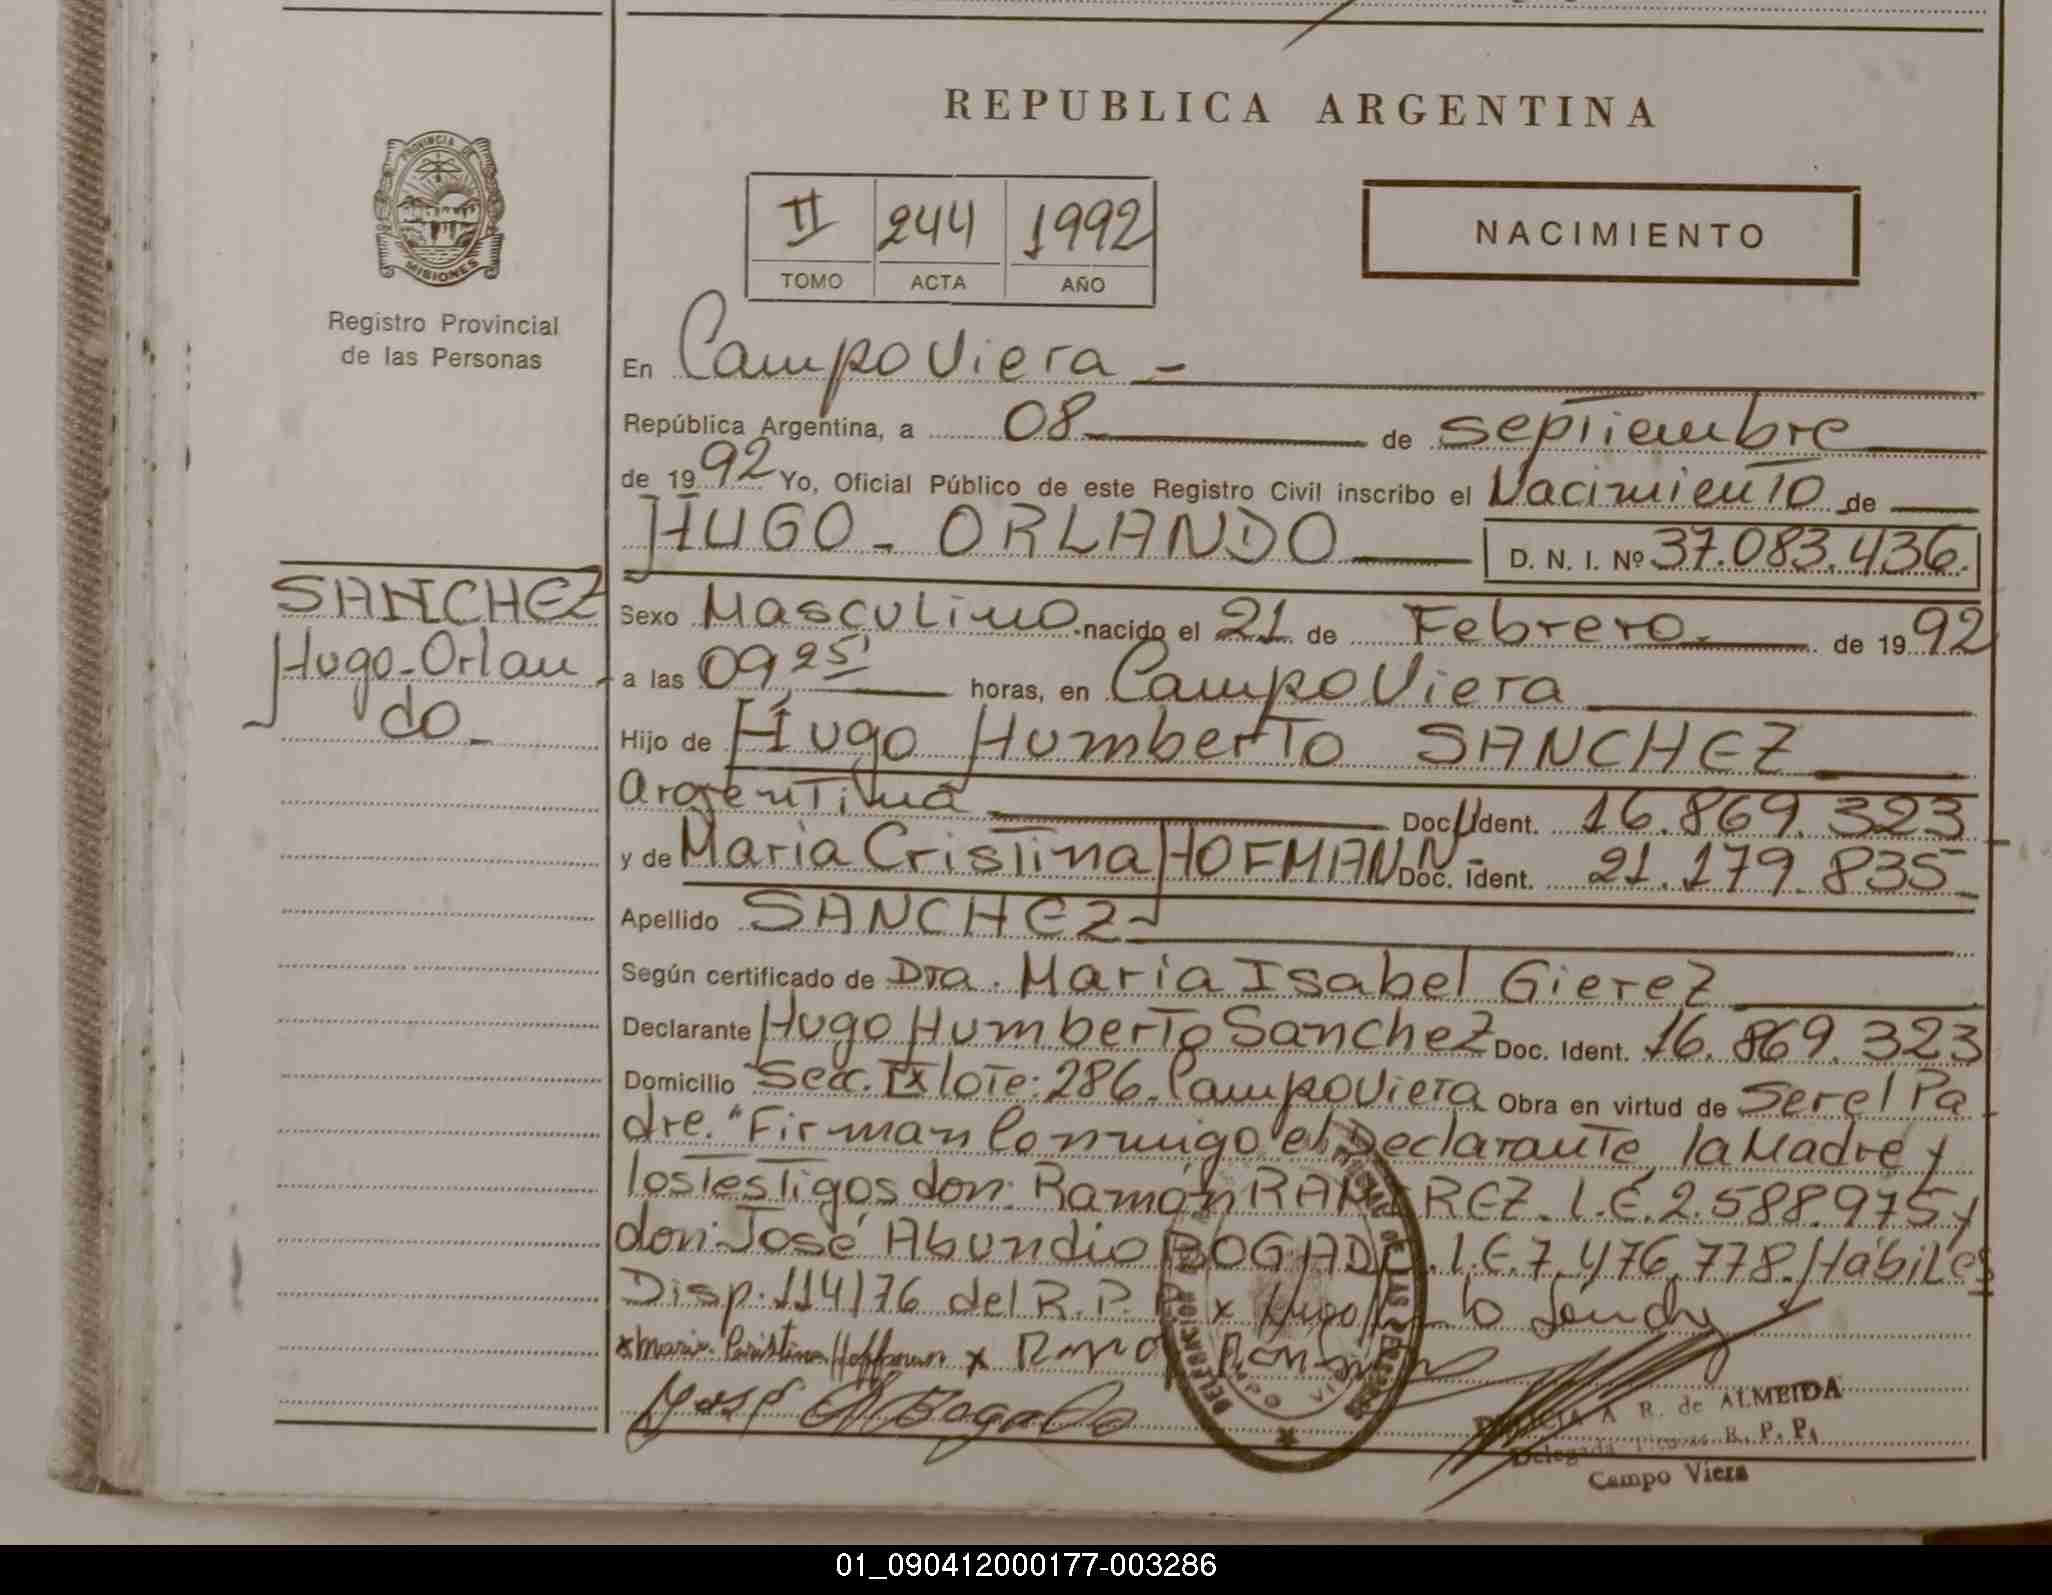 REPUBLICA ARGENTINA
PROVINCIA DE
MISIONES
Registro Provincial
de las Personas
II 244 1992
TOMO ACTA AÑO
NACIMIENTO
En Campo Viera -
República Argentina, a 08 de septiembre
de 1992 Yo, Oficial Público de este Registro Civil inscribo el Nacimiento de
HUGO - ORLANDO D. N. I. Nº 37.083.436.
SANCHEZ
Hugo-Orlan
do-
Sexo Masculino nacido el 21 de Febrero de 1992
a las 09,25' horas, en Campo Viera
Hijo de Hugo Humberto SANCHEZ
argentina Doc. Ident. 16.869.323
y de Maria Cristina HOFMANN- Doc. Ident. 21.179.835
Apellido SANCHEZ
Según certificado de Dra. Maria Isabel GiereZ
Declarante Hugo Humberto SancheZ Doc. Ident. 16.869.323
Domicilio Secc. IX lote: 286. Campo Viera Obra en virtud de Ser el Pa
dre. "Firman Conmigo el Declarante, la Madre y
los Testigos don: Ramón RAMIREZ. L.E. 2.588.975 y
don: José Abundio BOGADO. L.E. 7.476.778. Hábiles
Disp. 114/76 del R.P.P. x Hugo
x Maria Cristina Hoffman x
José A Bogado
DELEGACION
R. de ALMEIDA
Delegada R. P. P.
Campo Viera
01_090412000177-003286